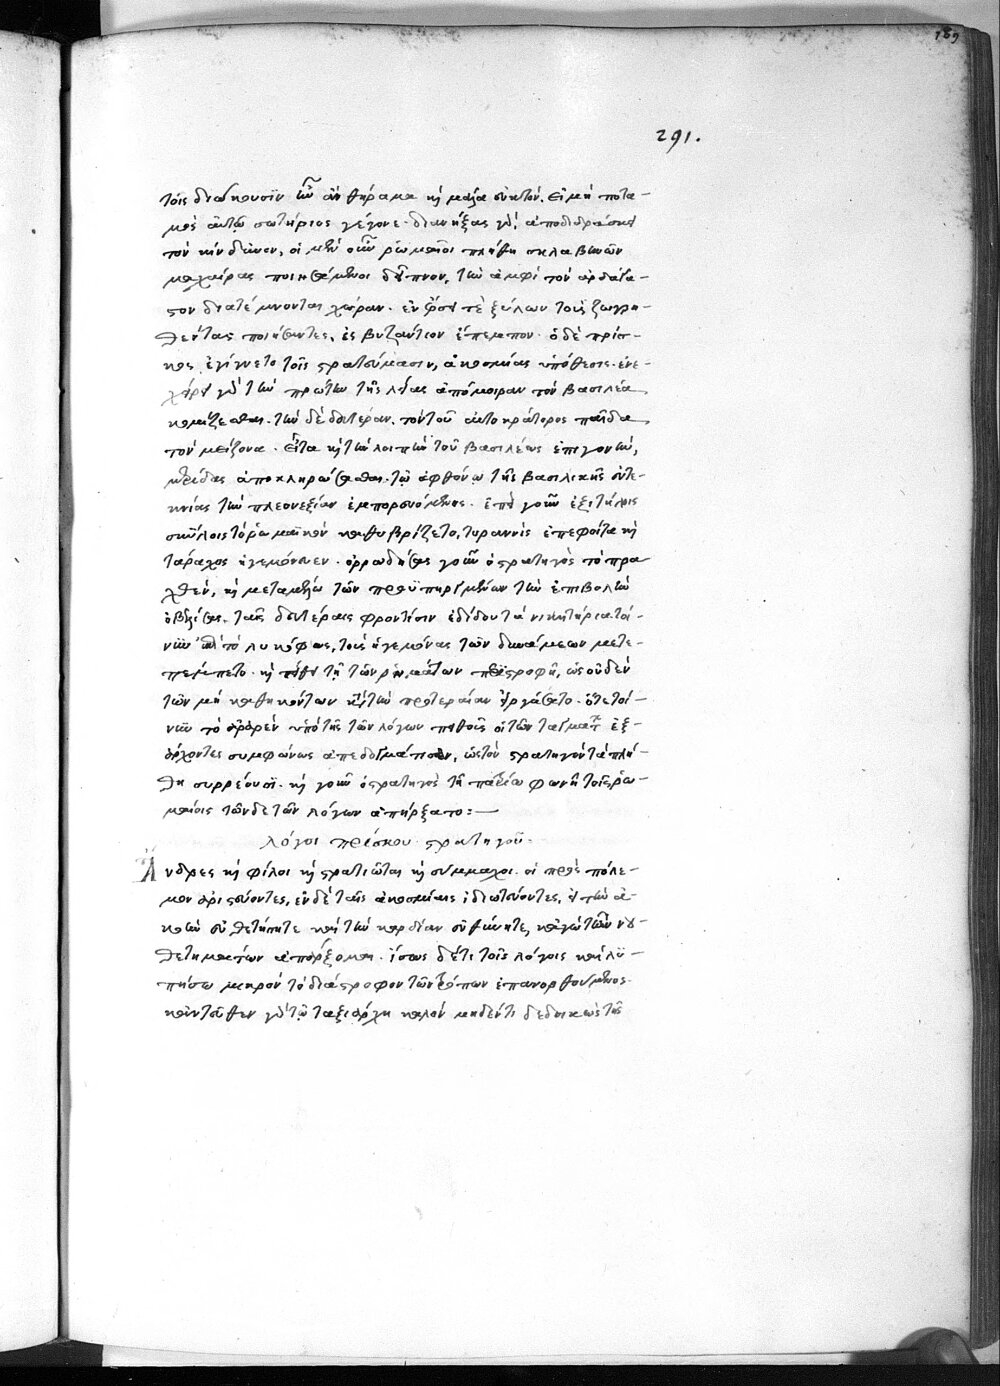 189
291.
τοῖς διώκουσιν ἦν ἂν θήραμα καὶ μάλα εὔκτόν. εἰ μὴ ποτα-
μὸς αὐτῷ σωτήριος γέγονε. διανηξάμενος γὰρ ἀποδιδράσκει
τὸν κίνδυνον, οἱ μὲν οὖν ῥωμαῖοι πλήθη σκλαβηνῶν
μαχαίρας ποιησάμενοι δεῖπνον, τὴν ἀμφὶ τὸν ἀρδάγα-
στον διατέμνονται χώραν. ἐν φρουρᾷ τὲ ξύλων τοὺς ζωγρη-
θέντας ποιήσαντες, ἐς βυζάντιον ἔπεμπον. ὁ δὲ πρίσ-
κος ἐγίγνετο τοῖς στρατεύμασιν, ἀκοσμίας ὑπόθεσις. ἐνε-
χείρει γὰρ τὴν πρώτην τῆς λείας ἀπόμοιραν τὸν βασιλέα
κομίζεσθαι. τὴν δὲ δευτέραν. τὸν τοῦ αὐτοκράτορος παῖδα
τὸν μείζονα. εἶτα καὶ τὴν λοιπὴν τοῦ βασιλέως ἐπιγονὴν,
μερίδας ἀποκληρώσασθαι. τῷ ἀφθόνῳ τῆς βασιλικῆς εὐτε-
κνίας τὴν πλεονεξίαν ἐμπορευόμενος. ἐπεὶ γοῦν ἐξιτήλοις
σκύλοις τὸ ῥωμαϊκὸν καθυβρίζετο, τυραννὶς ἐπεφοίτα καὶ
τάραχος ἡγεμόνευεν. ὀρρωδήσας γοῦν ὁ στρατηγὸς τὸ πρα
χθὲν, καὶ μεταμέλῳ τῶν προϋπηργμένων τὴν ἐπιβολὴν
ὀβελίσας. ταῖς δευτέραις φροντίσιν ἐδίδου τὰ νικητήρια τοί-
νυν ὑπὸ τὸ λυκόφως, τοὺς ἡγεμόνας τῶν δυνάμεων μετε-
πέμπετο. καὶ πείθει τῇ τῶν ῥημάτων περιστροφῇ, ὡς οὐδὲν
τῶν μὴ καθηκόντων κατὰ τὴν προτεραίαν εἰργάσατο. ἐπεὶ τοί-
νυν τὸ ὁραθὲν ὑπὸ τῆς τῶν λόγων πειθοῦς οἱ τῶν ταγμάτων ἐξ-
άρχοντες συμφώνως ἀπεδογμάτισαν, ὡς τὸν στρατηγὸν τὰ πλή-
θη συρρέουσι. καὶ γοῦν ὁ στρατηγὸς τῇ πατρίῳ φωνῇ τοῖς ῥω-
μαίοις τῶνδε τῶν λόγων ἀπήρξατο:—
λόγοι πρίσκου στρατηγοῦ.
Ἄνδρες καὶ φίλοι καὶ στρατιῶται καὶ σύμμαχοι. οἱ πρὸς πόλε-
μον ἀριστεύοντες, ἐν δὲ ταῖς ἀκοσμίαις ἰδιωτεύοντες, εἰ τὴν ἀ-
κοὴν εὐθετήσητε καὶ τὴν καρδίαν εὐφύητε, κἀγὼ τῶν νου-
θετημάτων ἀπάρξομαι. ἴσως δέ τι τοῖς λόγοις καὶ λυ-
πήσω μικρὸν τὸ διάστροφον τῶν τρόπων ἐπανορθούμενος.
κἀντεῦθεν γὰρ τῷ ταξιάρχῃ καλόν μηδέν τι δεδοικὼς τῆς